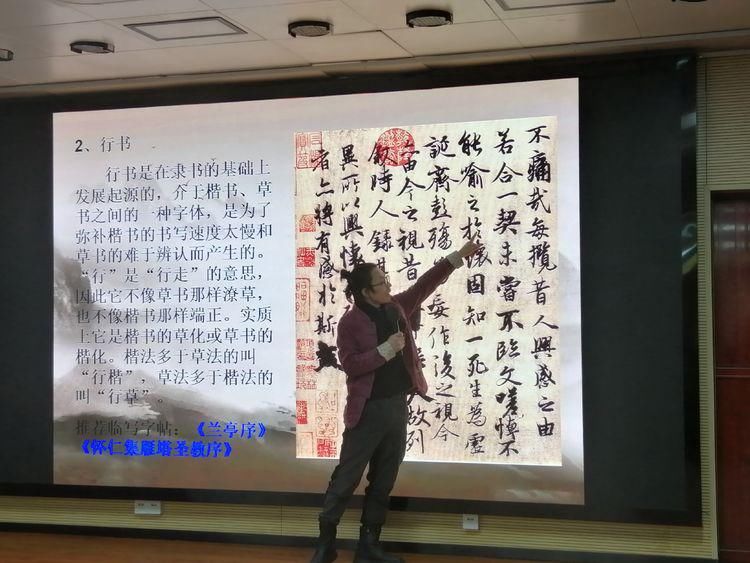 2、行书
行书是在隶书的基础上
发展起源的，介于楷书、草
书之间的一种字体，是为了
弥补楷书的书写速度太慢和
草书的难于辨认而产生的。
“行”是“行走”的意思，
因此它不像草书那样潦草，
也不像楷书那样端正。实质
上它是楷书的草化或草书的
楷化。楷法多于草法的叫
“行楷”，草法多于楷法的
叫“行草”。
推荐临写字帖：《兰亭序》
《怀仁集雁塔圣教序》
不痛哉每攬昔人興感之由
若合一契未嘗不臨文嗟悼不
能喻之於懷固知一死生為虛
誕齊彭殤妄作後之視今
由今之視昔夫故列
敘時人錄其
異所以興懷
者亦將有感於斯